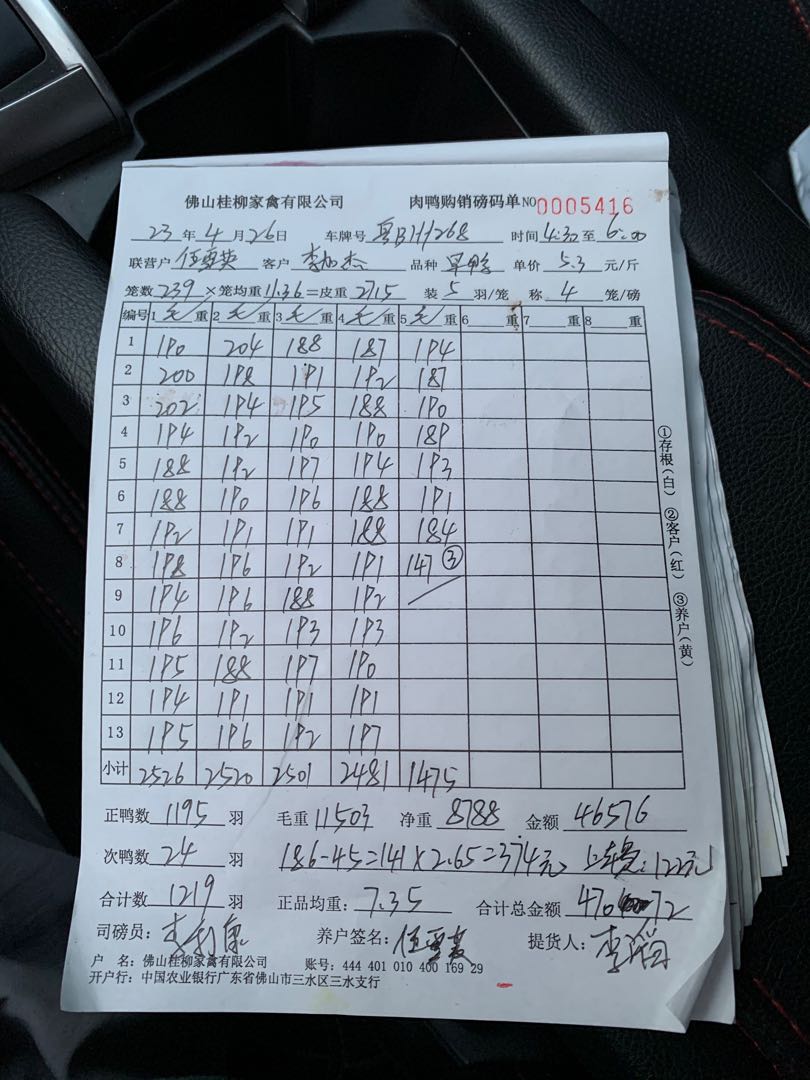 佛山桂柳家禽有限公司 肉鸭购销磅码单NO 0005416
23年4月26日 车牌号 粤BHH268 时间4:30至6:00
联营户 伍雪英 客户 李加杰 品种 旱鸭 单价 5.3 元/斤
笼数239×笼均重11.36=皮重2715 装5羽/笼 称4笼/磅
编号 1毛重 2毛重 3毛重 4毛重 5毛重 6重 7重 8重
1 190 204 188 187 194
2 200 198 191 192 187
3 202 194 195 188 190
4 194 192 190 190 189
5 188 192 197 194 193
6 188 190 196 188 191
7 192 191 191 188 184
8 198 196 192 191 147③
9 194 196 188 192
10 196 192 193 193
11 195 188 197 190
12 194 191 191 191
13 195 196 192 197
小计 2526 2520 2501 2481 1475
①存根(白) ②客户(红) ③养户(黄)
正鸭数 1195 羽 毛重 11503 净重 8788 金额 46576
次鸭数 24 羽 186-45=141×2.65=374元 上车费:122元
合计数 1219 羽 正品均重: 7.35 合计总金额 47072
司磅员: 养户签名: 伍雪英 提货人:
户 名: 佛山桂柳家禽有限公司 账号: 444 401 010 400 169 29
开户行: 中国农业银行广东省佛山市三水区三水支行